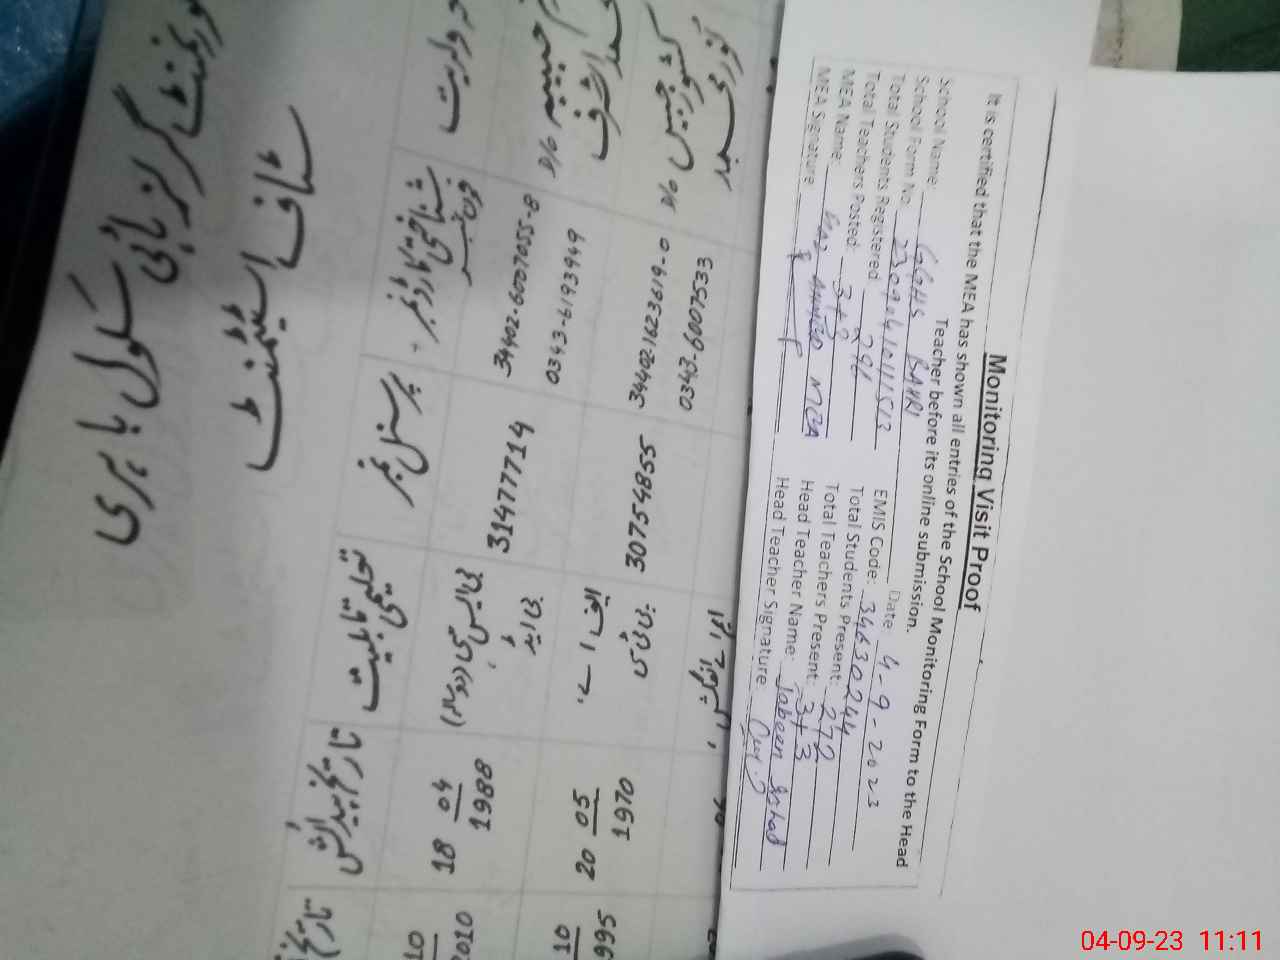 گورنمنٹ گرلز ہائی سکول باہری
سٹاف سٹیٹمنٹ
ولدیت
شناختی کارڈ نمبر
فون نمبر
پرسنل نمبر
تعلیمی قابلیت
تاریخ پیدائش
تاریخ
حبیبہ
D/o
اشرف
34402-6007055-8
0343-6193949
31477714
بی ایس سی (دوسالہ)
بی ایڈ
18 04 1988
10 2010
کشور جبیں
D/o
نور محمد
34402-1623619-0
0343-6007533
30754855
ایف اے
پی ٹی سی
20 05 1970
10 995
Monitoring Visit Proof
It is certified that the MEA has shown all entries of the School Monitoring Form to the Head
Teacher before its online submission.
School Name: GGHS BAHRI Date: 4-9-2023
School Form No. EMIS Code: 34630244
Total Students Registered: 291 Total Students Present: 272
Total Teachers Posted: 3+3 Total Teachers Present: 3+3
MEA Name: AHMED MEA Head Teacher Name: Jabeen
MEA Signature Head Teacher Signature:
04-09-23 11:11